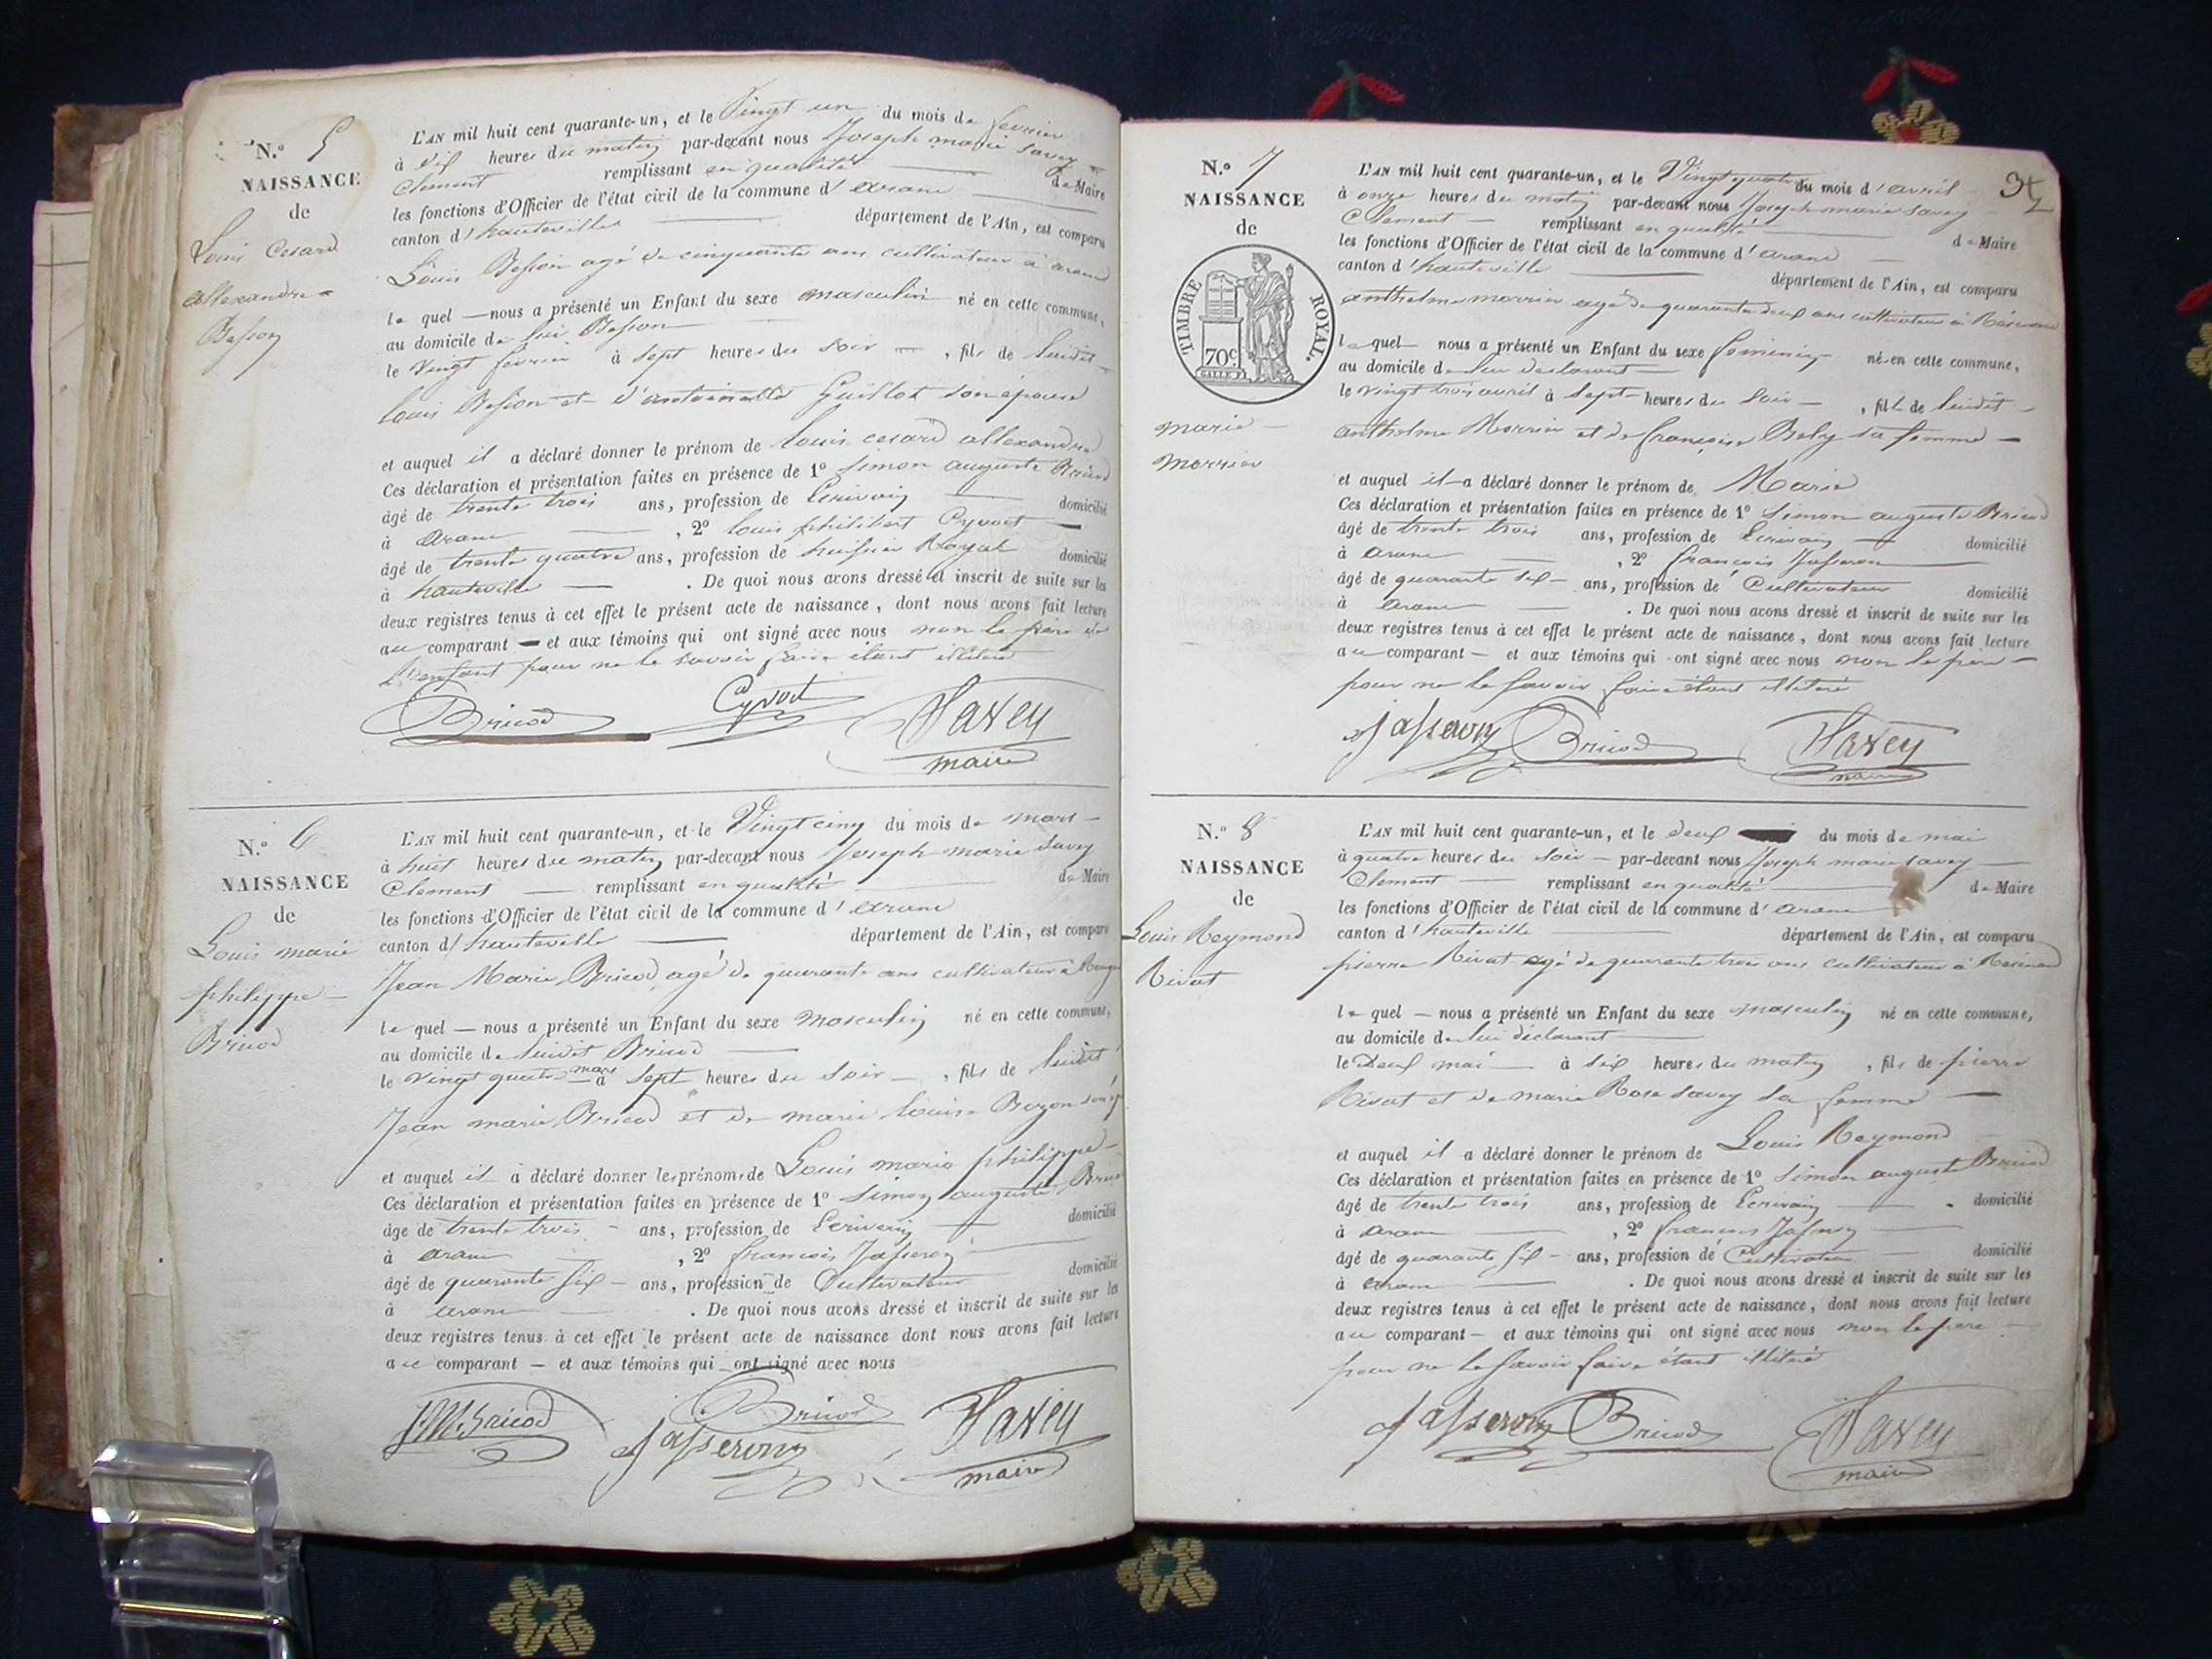 N.º 5
NAISSANCE
de
Louis Cesard
allexandre
Besson
L'AN mil huit cent quarante-un, et le Vingt un du mois de fevrier
à dix heures du matin par-devant nous Joseph marie Savey
Clement remplissant en qualité de Maire
les fonctions d'Officier de l'état civil de la commune d'arane
canton d'hauteville département de l'Ain, est comparu
Louis Besson agé de cinquante ans cultivateur à arane
le quel nous a présenté un Enfant du sexe masculin né en cette commune,
au domicile de lui Besson
le Vingt fevrier à sept heures du soir, fils de ludit
louis Besson et d'antoinette Guillot son épouse
et auquel il a déclaré donner le prénom de louis cesard allexandre
Ces déclaration et présentation faites en présence de 1º Simon auguste Bricod
âgé de trente trois ans, profession de Ecrivain domicilié
à arane, 2º louis philibert Cyvoct
âgé de trente quatre ans, profession de huissier Royal domicilié
à hauteville. De quoi nous avons dressé et inscrit de suite sur les
deux registres tenus à cet effet le présent acte de naissance, dont nous avons fait lecture
au comparant et aux témoins qui ont signé avec nous non le père de
l'enfant pour ne le savoir faire étant illitéré
Bricod Cyvoct Savey
maire
N.º 6
NAISSANCE
de
Louis marie
philippe
Bricod
L'AN mil huit cent quarante-un, et le Vingt cinq du mois de mars
à huit heures du matin par-devant nous Joseph marie Savey
Clement remplissant en qualité de Maire
les fonctions d'Officier de l'état civil de la commune d'arane
canton d'hauteville département de l'Ain, est comparu
Jean Marie Bricod agé de quarante ans cultivateur à
le quel nous a présenté un Enfant du sexe masculin né en cette commune,
au domicile de ludit Bricod
le vingt quatre mars à sept heures du soir, fils de ludit
Jean marie Bricod et de marie louise Bozon son
et auquel il a déclaré donner les prénoms de Louis marie philippe
Ces déclaration et présentation faites en présence de 1º Simon auguste Bricod
âgé de trente trois ans, profession de Ecrivain domicilié
à arane, 2º francois Jasseron
âgé de quarante six ans, profession de Cultivateur domicilié
à arane. De quoi nous avons dressé et inscrit de suite sur les
deux registres tenus à cet effet le présent acte de naissance dont nous avons fait lecture
au comparant et aux témoins qui ont signé avec nous
J.M. Bricod Bricod Jasseron Savey
maire
34
N.º 7
NAISSANCE
de
TIMBRE ROYAL.
70c.
marie
morrier
L'AN mil huit cent quarante-un, et le Vingt quatre du mois d'avril
à onze heures du matin par-devant nous Joseph marie Savey
Clement remplissant en qualité de Maire
les fonctions d'Officier de l'état civil de la commune d'arane
canton d'hauteville département de l'Ain, est comparu
anthelme morrier agé de quarante deux ans cultivateur à Résinand
le quel nous a présenté un Enfant du sexe feminin né en cette commune,
au domicile de lui déclarant
le vingt trois avril à sept heures du soir, fille de ludit
anthelme Morrier et de françoise Bely sa femme
et auquel il a déclaré donner le prénom de Marie
Ces déclaration et présentation faites en présence de 1º Simon auguste Bricod
âgé de trente trois ans, profession de Ecrivain domicilié
à arane, 2º francois Jasseron
âgé de quarante six ans, profession de Cultivateur domicilié
à arane. De quoi nous avons dressé et inscrit de suite sur les
deux registres tenus à cet effet le présent acte de naissance, dont nous avons fait lecture
au comparant et aux témoins qui ont signé avec nous non le pere
pour ne le savoir faire étant illitéré
Jasseron Bricod Savey
maire
N.º 8
NAISSANCE
de
Louis Reymond
Rivat
L'AN mil huit cent quarante-un, et le deux du mois de mai
à quatre heures du soir par-devant nous Joseph marie Savey
Clement remplissant en qualité de Maire
les fonctions d'Officier de l'état civil de la commune d'arane
canton d'hauteville département de l'Ain, est comparu
pierre Rivat agé de quarante trois ans cultivateur à Resinand
le quel nous a présenté un Enfant du sexe masculin né en cette commune,
au domicile de lui déclarant
le Deux mai à six heures du matin, fils de pierre
Rivat et de marie Rose Savey sa femme
et auquel il a déclaré donner le prénom de Louis Reymond
Ces déclaration et présentation faites en présence de 1º Simon auguste Bricod
âgé de trente trois ans, profession de Ecrivain domicilié
à arane, 2º francois Jasseron
âgé de quarante six ans, profession de Cultivateur domicilié
à arane. De quoi nous avons dressé et inscrit de suite sur les
deux registres tenus à cet effet le présent acte de naissance, dont nous avons fait lecture
au comparant et aux témoins qui ont signé avec nous non le pere
pour ne le savoir faire étant illitéré
Jasseron Bricod Savey
maire